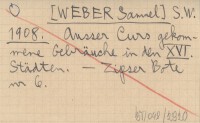 [WEBER Samuel] S.W.
1908. Ausser Curs gekom-
mene Gebräuche in den XVI.
Städten. — Zipser Bote
nr 6.